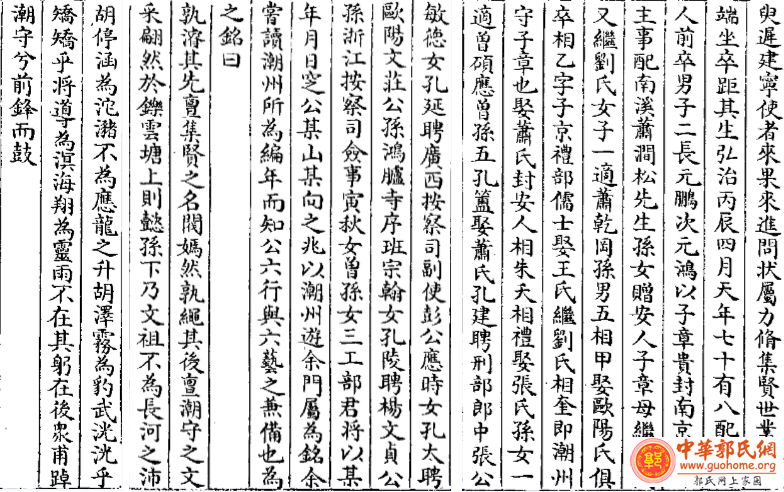 臾遲建寧使者來果來進問狀屬力脩集賢世業
端坐卒距其生弘治丙辰四月夭年七十有八配
人前卒男子二長元鵬次元鴻以子章貴封南京
主事配南溪蕭澗松先生孫女贈安人子章母繼
又繼劉氏女子一適蕭乾岡孫男五相甲娶歐陽氏俱
卒相乙字子京禮部儒士娶王氏繼劉氏相奎即潮州
守子章也娶蕭氏封安人相朱夭相禮娶張氏孫女一
適曾碩應曾孫五孔簠娶蕭氏孔建聘刑部郎中張公
敏德女孔延聘廣西按察司副使彭公應時女孔太聘
歐陽文莊公孫鴻臚寺序班宗翰女孔陵聘楊文貞公
孫浙江按察司僉事寅秋女曾孫女三工部君將以某
年月日窆公某山某向之兆以潮州遊余門屬為銘余
嘗讀潮州所為編年而知公六行與六藝之兼備也為
之銘曰
孰濬其先亶集賢之名閥嫣然孰繩其後亶潮守之文
采翩然於鑠雲塘上則懿孫下乃文祖不為長河之沛
胡停涵為沱潴不為應龍之升胡澤霧為豹武洸洸乎
矯矯乎將導為溟海翔為靈雨不在其躬在後眾甫踔
潮守兮前鋒而鼓
中華郭氏網
www.guohome.org
郭氏网上家园